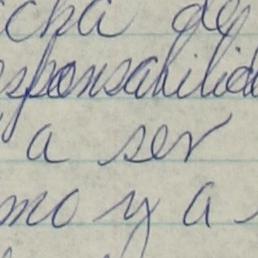 icha de
esponsabilida
a ser
mo y a